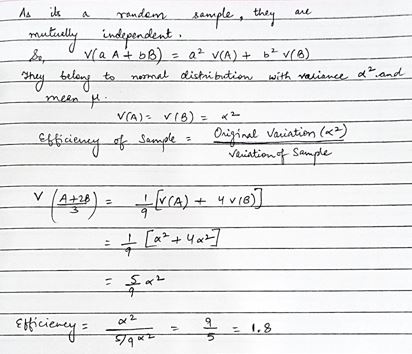 As its a random sample, they are
mutually independent.
So, V(aA + bB) = a² V(A) + b² V(B)
They belong to normal distribution with variance α² and
mean μ.
V(A) = V(B) = α²
Efficiency of Sample = Original Variation (α²) / Variation of Sample
V((A+2B)/3) = 1/9 [V(A) + 4V(B)]
= 1/9 [α² + 4α²]
= 5/9 α²
Efficiency = α² / (5/9 α²) = 9/5 = 1.8